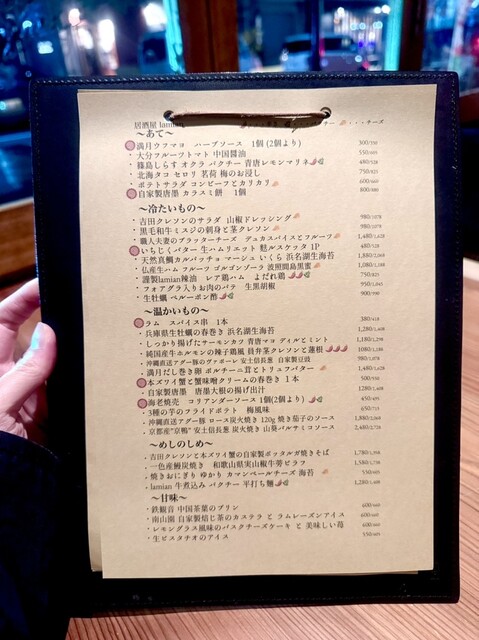 居酒屋 lamian
・・・チーズ
〜あて〜
満月ウフマヨ ハーブソース 1個 (2個より) 300/330
・大分フルーツトマト 中国醤油 550/605
・篠島しらす オクラ パクチー 青唐レモンマリネ 480/528
・北海タコ セロリ 茗荷 梅のお浸し 750/825
・ポテトサラダ コンビーフとカリカリ 600/660
自家製唐墨 カラスミ餅 1個 800/880
〜冷たいもの〜
・吉田クレソンのサラダ 山椒ドレッシング 980/1078
・黒毛和牛ミスジの刺身と茎クレソン 980/1078
・職人夫妻のブラッターチーズ デュカスパイスとフルーツ 1,480/1,628
いちじくバター 生ハムリエット 麩ルスケッタ 1P 480/528
・天然真鯛カルパッチョ マーシュ いくら 浜名湖生海苔 1,880/2,068
・仏産生ハム フルーツ ゴルゴンゾーラ 波照間島黒蜜 1,080/1,188
・謹製lamian辣油 レア鶏ハム よだれ鶏 750/825
・フォアグラ入りお肉のパテ 生黒胡椒 950/1,045
・生牡蠣 ペルーポン酢 900/990
〜温かいもの〜
ラム スパイス串 1本 380/418
・兵庫県生牡蠣の春巻き 浜名湖生海苔 1,280/1,408
・しっかり揚げたサーモンカツ 青唐マヨ ディルとミント 1,180/1,298
・純国産牛ホルモンの辣子鶏風 貝弁茎クレソンと蓮根 1080/1,188
・沖縄直送アグー豚のヴァポーレ 安土信長葱 自家製豆豉 980/1,078
・満月だし巻き卵 ポルチーニ茸とトリュフバター 1,480/1,628
本ズワイ蟹と蟹味噌クリームの春巻き 1本 500/550
・自家製唐墨 唐墨大根の揚げ出汁 1,280/1,408
海老焼売 コリアンダーソース 1個(2個より) 450/495
・3種の芋のフライドポテト 梅風味 650/715
・沖縄直送アグー豚 ロース炭火焼き 120g 焼き茄子のソース 1,880/2,068
・京都産"京鴨" 安土信長葱 炭火焼き 山葵バルサミコソース 2,480/2,728
〜めしのしめ〜
・吉田クレソンと本ズワイ蟹の自家製ボッタルガ焼きそば 1,780/1,958
・一色産鰻炭焼き 和歌山県実山椒牛蒡ピラフ 1,580/1,738
・焼きおにぎり ゆかり カマンベールチーズ 海苔 550/605
・lamian 牛煮込み パクチー 平打ち麺 1,280/1,408
〜甘味〜
・鉄観音 中国茶葉のプリン 600/660
・南山園 自家製焙じ茶のカステラ と ラムレーズンアイス 600/660
・レモングラス風味のバスクチーズケーキ と 美味しい苺 600/660
・生ピスタチオのアイス 550/605